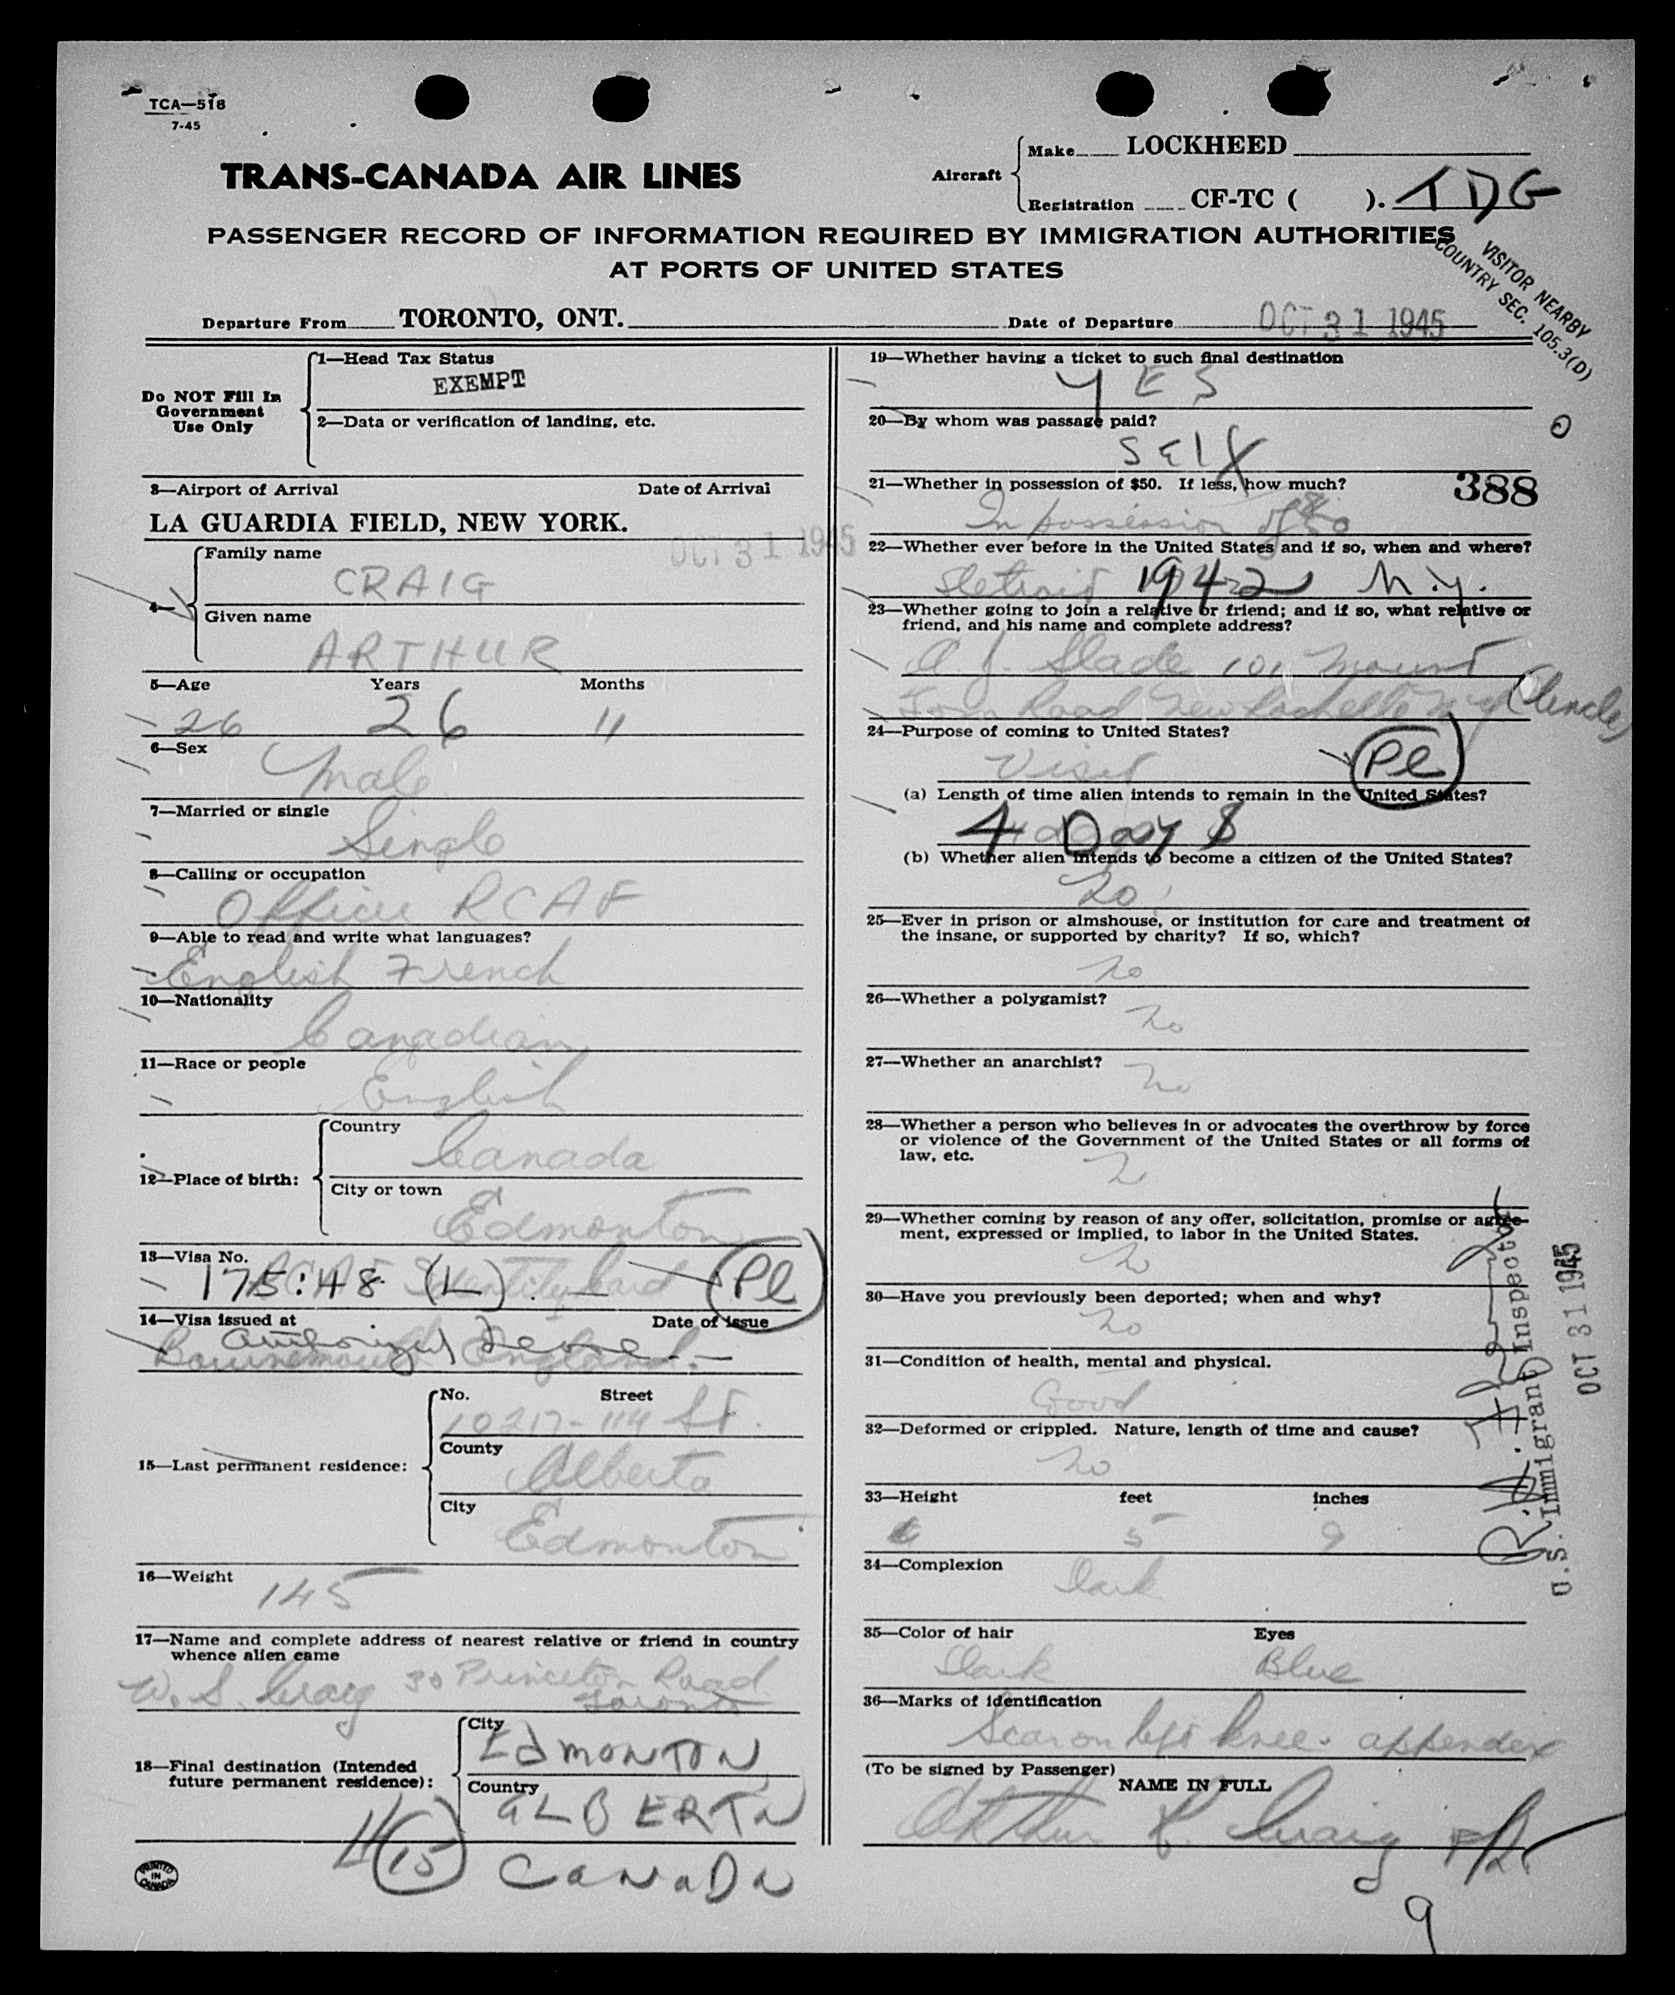 TCA—518
7-45
TRANS-CANADA AIR LINES
Aircraft
Make LOCKHEED
Registration CF-TC ( ). TDG
PASSENGER RECORD OF INFORMATION REQUIRED BY IMMIGRATION AUTHORITIES
AT PORTS OF UNITED STATES
VISITOR NEARBY
COUNTRY SEC. 105.3(D)
Departure From TORONTO, ONT. Date of Departure OCT 31 1945
Do NOT Fill In
Government
Use Only
1—Head Tax Status
EXEMPT
2—Data or verification of landing, etc.
3—Airport of Arrival Date of Arrival
LA GUARDIA FIELD, NEW YORK.
OCT 31 1945
4—
Family name
CRAIG
Given name
ARTHUR
5—Age Years Months
26 26 11
6—Sex
Male
7—Married or single
Single
8—Calling or occupation
Officer RCAF
9—Able to read and write what languages?
English French
10—Nationality
Canadian
11—Race or people
English
12—Place of birth:
Country
Canada
City or town
Edmonton
13—Visa No.
RCAF Identity Card
175:48 (L). — Pl
14—Visa issued at Date of issue
Bournemouth England.
15—Last permanent residence:
No. Street
10217-114 St.
County
Alberta
City
Edmonton
16—Weight
145
17—Name and complete address of nearest relative or friend in country
whence alien came
W. S. Craig 30 Princeton Road
Toronto
18—Final destination (Intended
future permanent residence):
City
EDMONTON
Country
ALBERTA
CANADA
15
PRINTED
IN
CANADA
19—Whether having a ticket to such final destination
YES
20—By whom was passage paid?
SELF
21—Whether in possession of $50. If less, how much?
388
In possession of
22—Whether ever before in the United States and if so, when and where?
Detroit 1942 N.Y.
23—Whether going to join a relative or friend; and if so, what relative or
friend, and his name and complete address?
A. J. Slade 101 Mount
Road New Rochelle N.Y. (Uncle)
24—Purpose of coming to United States?
Visit Pl
(a) Length of time alien intends to remain in the United States?
4 Days
(b) Whether alien intends to become a citizen of the United States?
No
25—Ever in prison or almshouse, or institution for care and treatment of
the insane, or supported by charity? If so, which?
No
26—Whether a polygamist?
No
27—Whether an anarchist?
No
28—Whether a person who believes in or advocates the overthrow by force
or violence of the Government of the United States or all forms of
law, etc.
29—Whether coming by reason of any offer, solicitation, promise or agree-
ment, expressed or implied, to labor in the United States.
No
30—Have you previously been deported; when and why?
No
31—Condition of health, mental and physical.
Good
32—Deformed or crippled. Nature, length of time and cause?
No
33—Height feet inches
5 9
34—Complexion
Dark
35—Color of hair Eyes
Dark Blue
36—Marks of identification
Scar on left knee. appendex
(To be signed by Passenger)
NAME IN FULL
Arthur Craig
9
U.S. Immigrant Inspector
OCT 31 1945